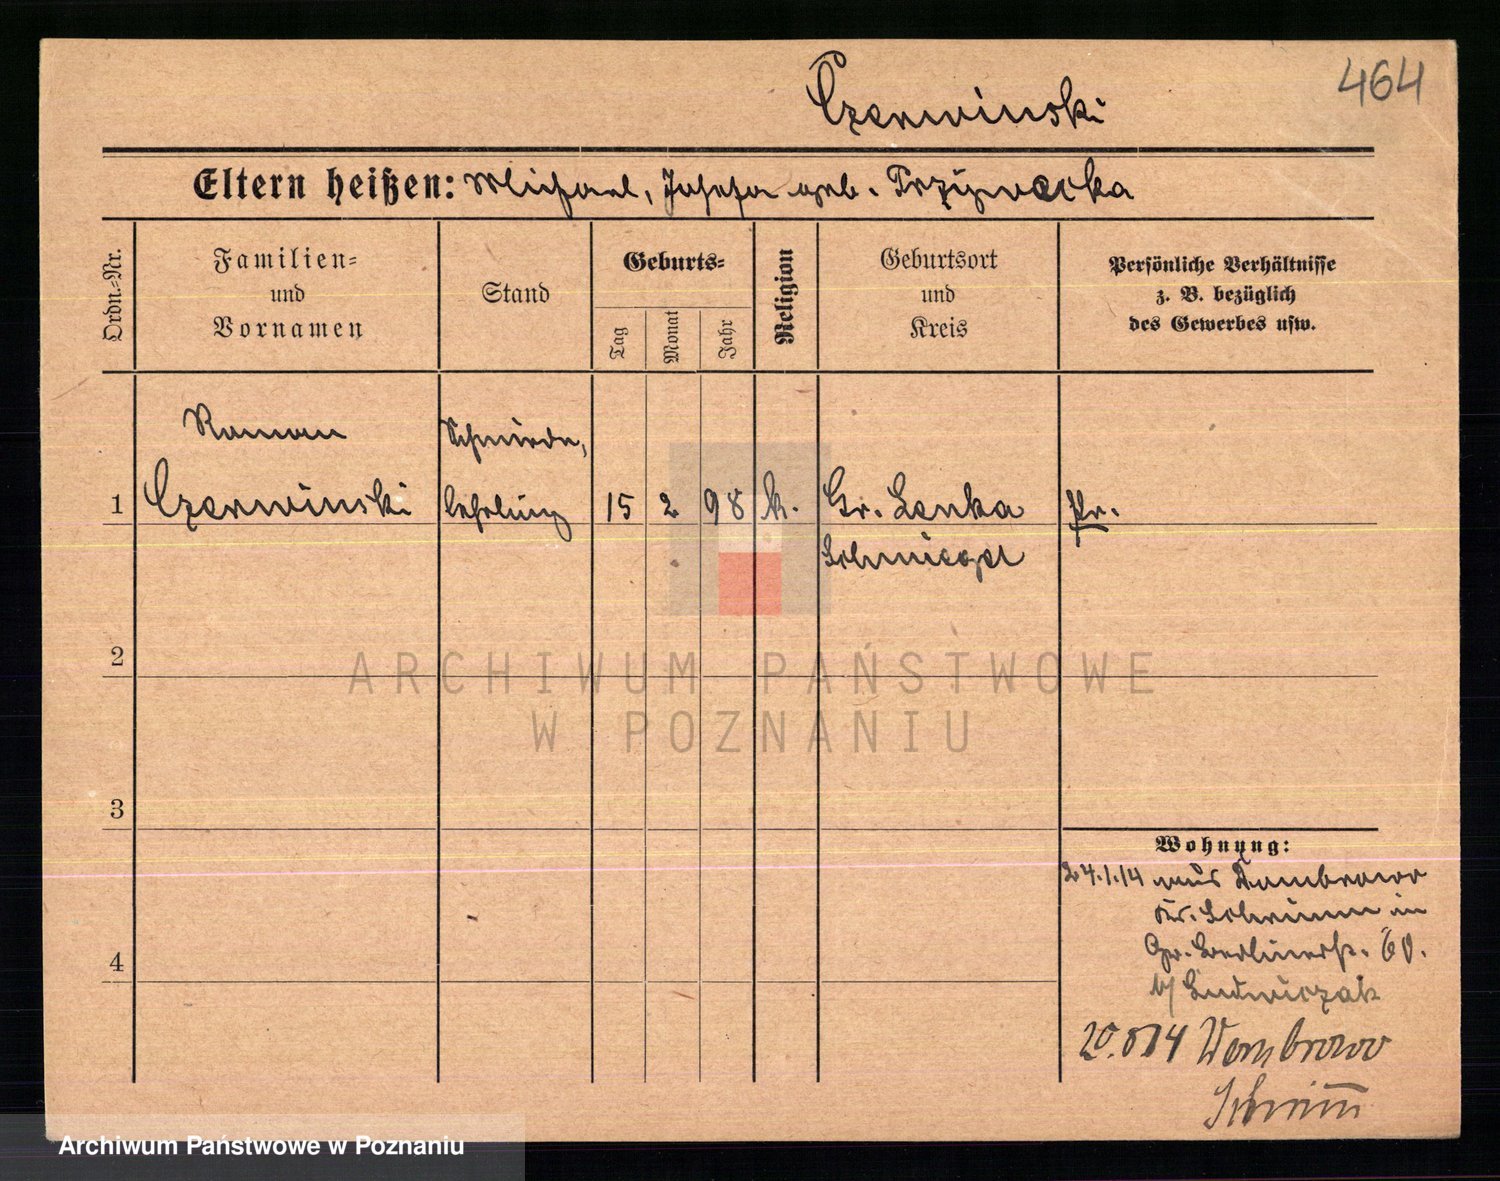 464
Czerwinski
Eltern heißen: Michael, Josefa geb. Przywecka
Ordn.=Nr.
Familien=
und
Vornamen
Stand
Geburts=
Tag
Monat
Jahr
Religion
Geburtsort
und
Kreis
Persönliche Verhältnisse
z. B. bezüglich
des Gewerbes usw.
Roman
Schmiede,
1 Czerwinski lehrling 15 2 98 k. Gr. Lenka Pr.
Schmiegel
2
ARCHIWUM PAŃSTWOWE
W POZNANIU
3
Wohnung:
24.1.14 aus Dombrowo
Kr. Schrimm in
Gr. Berlinerst. 60.
b/ Ludwiczak
4
20.814 Dombrowo
Schrimm
Archiwum Państwowe w Poznaniu